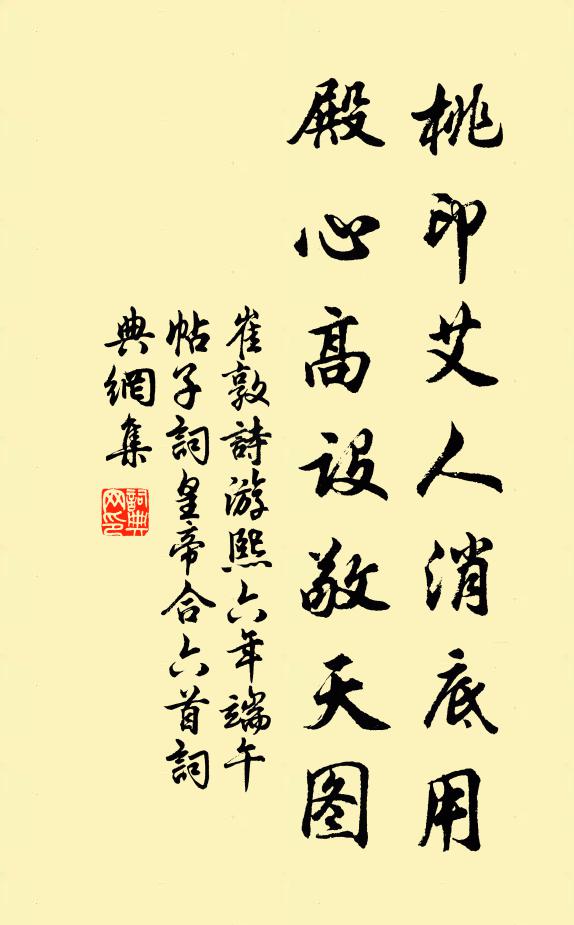 桃印艾人消底用
殿心高设敬天图
崔敦詩游熙六年端午
帖子詞皇帝合六首詞
典網集
詞典网印